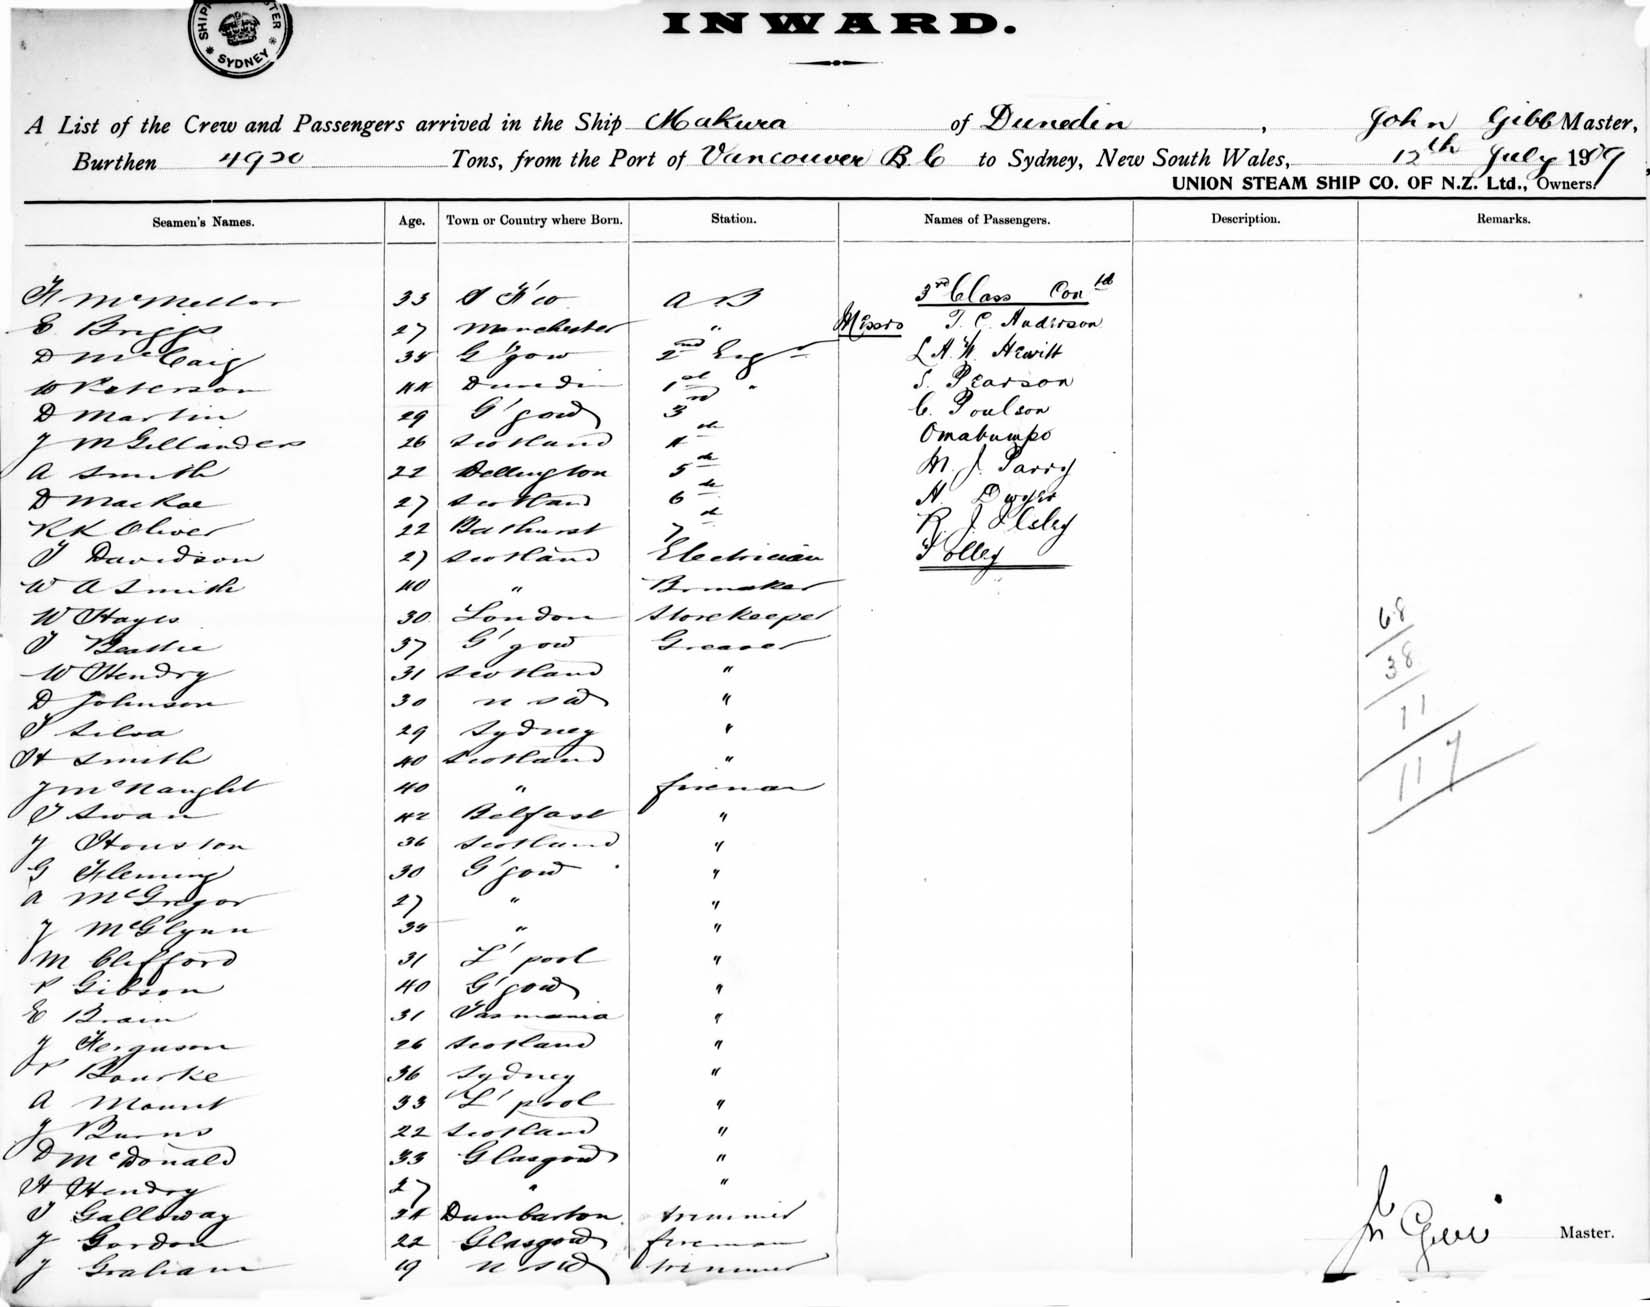 SYDNEY
INWARD.
A List of the Crew and Passengers arrived in the Ship Makura of Dunedin, John Gibb Master,
Burthen 4920 Tons, from the Port of Vancouver B C to Sydney, New South Wales, 12th July 1909
UNION STEAM SHIP CO. OF N.Z. Ltd., Owners.
Seamen's Names. Age. Town or Country where Born. Station. Names of Passengers. Description. Remarks.
33 A B 3rd Class Contd
E Briggs 27 Manchester " Messrs T. C. Anderson
D McCaig 35 G'gow 2nd Engr L A. W. Hewitt
W Paterson 44 Dunedin 1st " S. Pearson
D Martin 29 G'gow 3rd C. Poulson
J McGillanders 26 Scotland 4th Omabumpo
A Smith 22 5th M. J. Parry
D MacRae 27 Scotland 6th H. Dwyer
R K Oliver 22 Bathurst 7th R. J. Ilsley
T Davidson 27 Scotland Electrician Folley
W A Smith 40 " Brmaker
W Hayes 30 London Storekeeper
T Beattie 37 G'gow Greaser
W Hendry 31 Scotland "
D Johnson 30 N S W "
T Silva 29 Sydney "
H Smith 40 Scotland "
J McNaught 40 " fireman
T Swan 42 Belfast "
J Houston 36 Scotland "
G Fleming 30 G'gow "
A McGregor 27 " "
J McGlynn 35 " "
M Clifford 31 L'pool "
P Gibson 40 G'gow "
E Brain 31 Tasmania "
J Ferguson 26 Scotland "
P Bourke 36 Sydney "
A Mount 33 L'pool "
J Burns 22 Scotland "
D McDonald 33 Glasgow "
H Hendry 27 " "
T Galloway 24 Dumbarton trimmer
J Gordon 22 Glasgow fireman
J Graham 19 N S W trimmer
68
38
11
117
Jn Gibb Master.